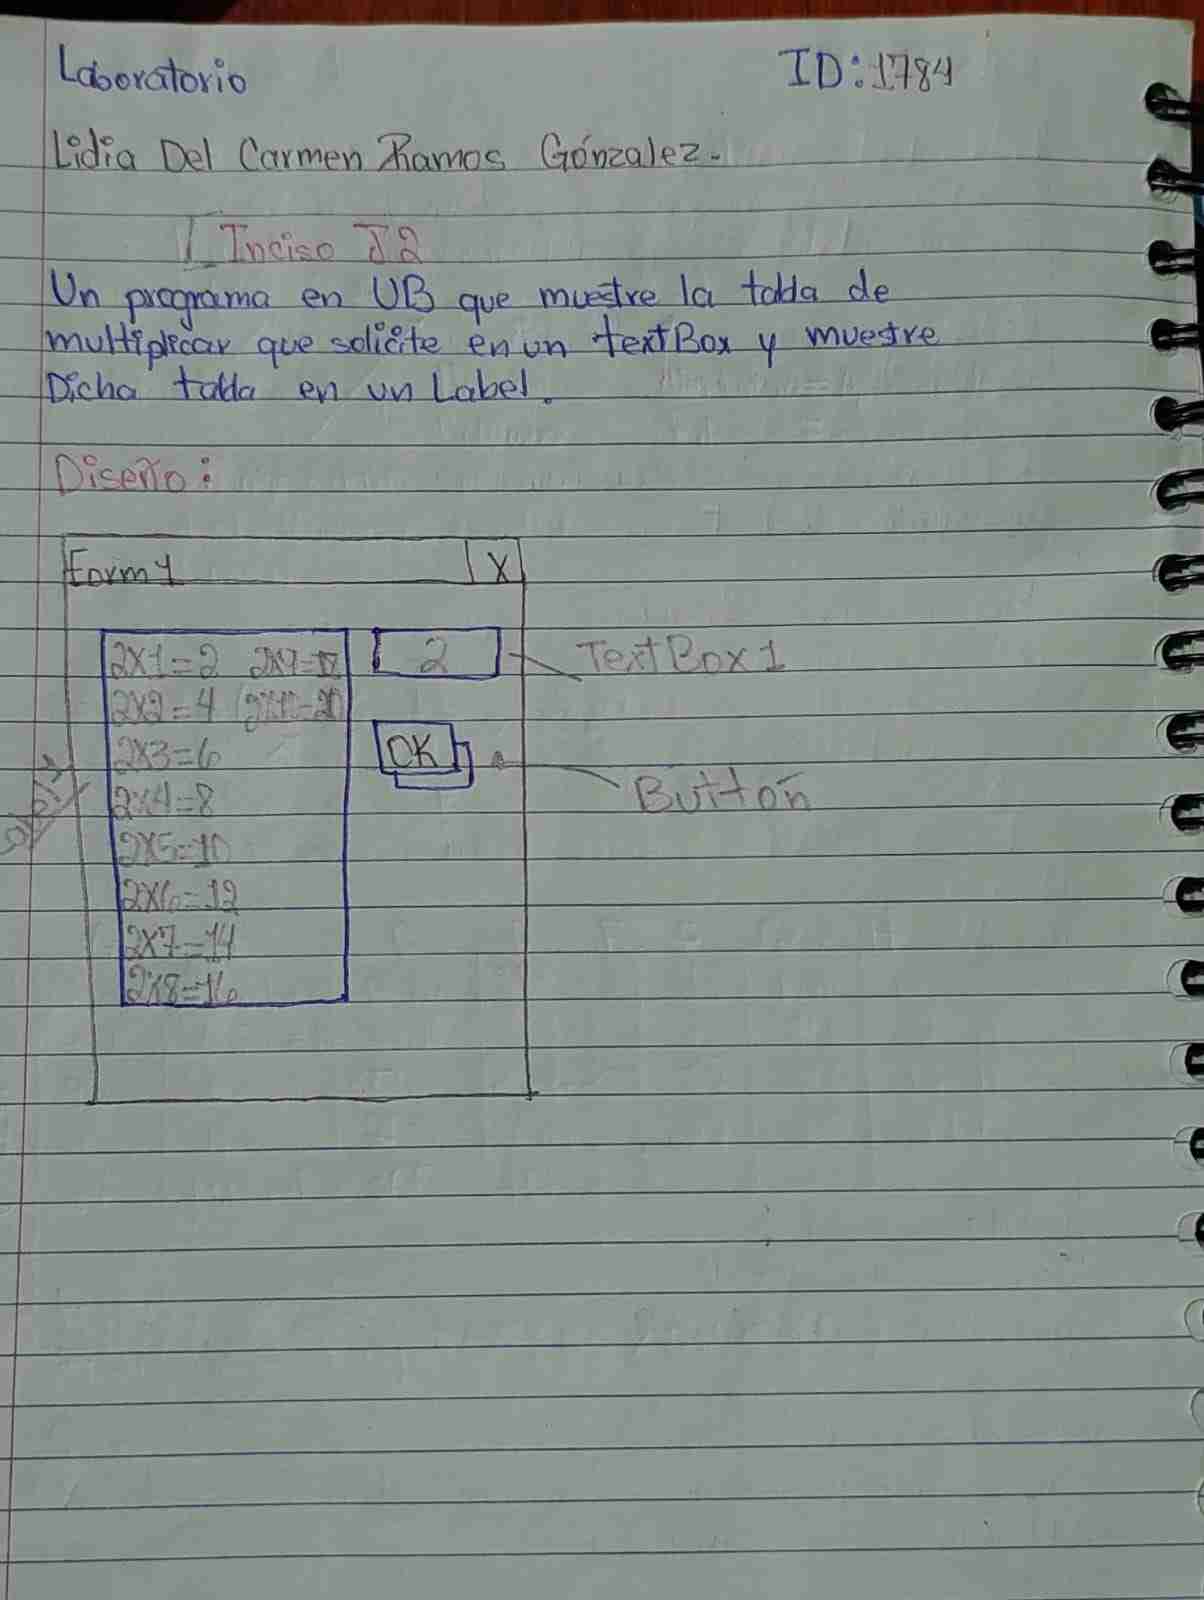 Laboratorio ID: 1784
Lidia Del Carmen Ramos Gónzalez.
Inciso J2
Un programa en UB que muestre la tabla de
multiplicar que solicite en un textBox y muestre
Dicha tabla en un Label.
Diseño:
Form 1 X
2x1=2 2x9=18 2 TextBox 1
2x2=4 2x10=20
2x3=6 OK
2x4=8 Button
2x5=10
2x6=12
2x7=14
2x8=16